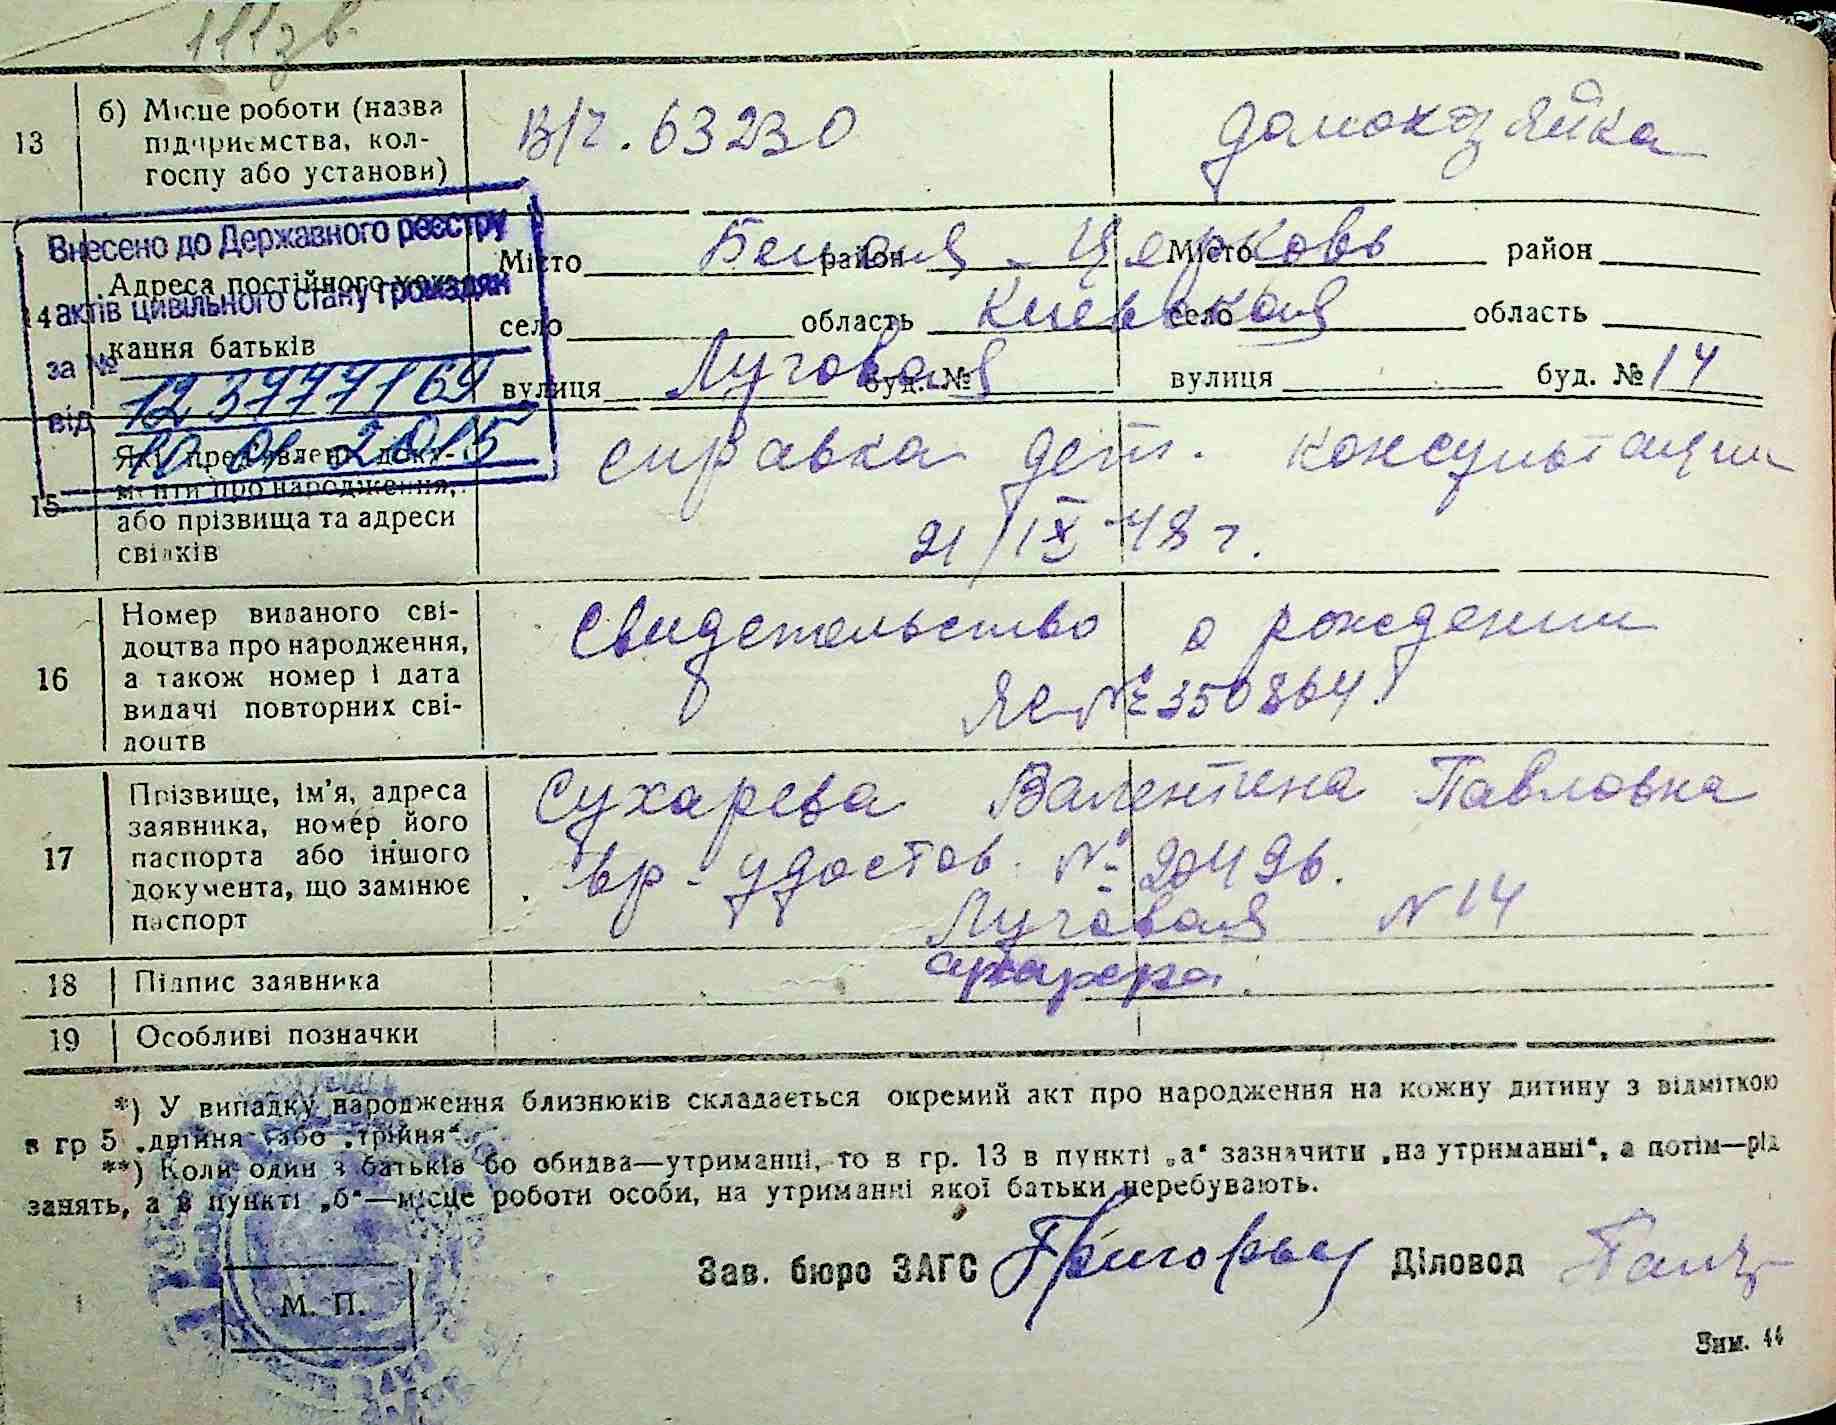 111зв.
13
б) Місце роботи (назва
підприємства, кол-
госпу або установи)
В/Ч. 63230
домохозяйка
Внесено до Державного реєстру
актів цивільного стану громадян
за № 123777169
від 10 01 2015
14
Адреса постійного
кання батьків
Місто Белая - Церковь район
Місто район
село область Киевская
село область
вулиця Луговая буд. №
вулиця буд. № 14
15
Які пред'явлені доку-
менти про народження,
або прізвища та адреси
свідків
справка дет. консультации
21/IX-48 г.
16
Номер виданого сві-
доцтва про народження,
а також номер і дата
видачі повторних сві-
доцтв
Свидетельство о рождении
ЯС № 350864.
17
Прізвище, ім'я, адреса
заявника, номер його
паспорта або іншого
документа, що замінює
паспорт
Сухарева Валентина Павловна
вр. удостов. № 20496.
Луговая N 14
18
Підпис заявника
19
Особливі позначки
*) У випадку народження близнюків складається окремий акт про народження на кожну дитину з відміткою
в гр 5 „двійня" або „трійня".
**) Коли один з батьків бо обидва—утриманці, то в гр. 13 в пункті „а" зазначити „на утриманні", а потім—рід
занять, а в пункті „б"—місце роботи особи, на утриманні якої батьки перебувають.
Зав. бюро ЗАГС Діловод
М. П.
Зим. 44